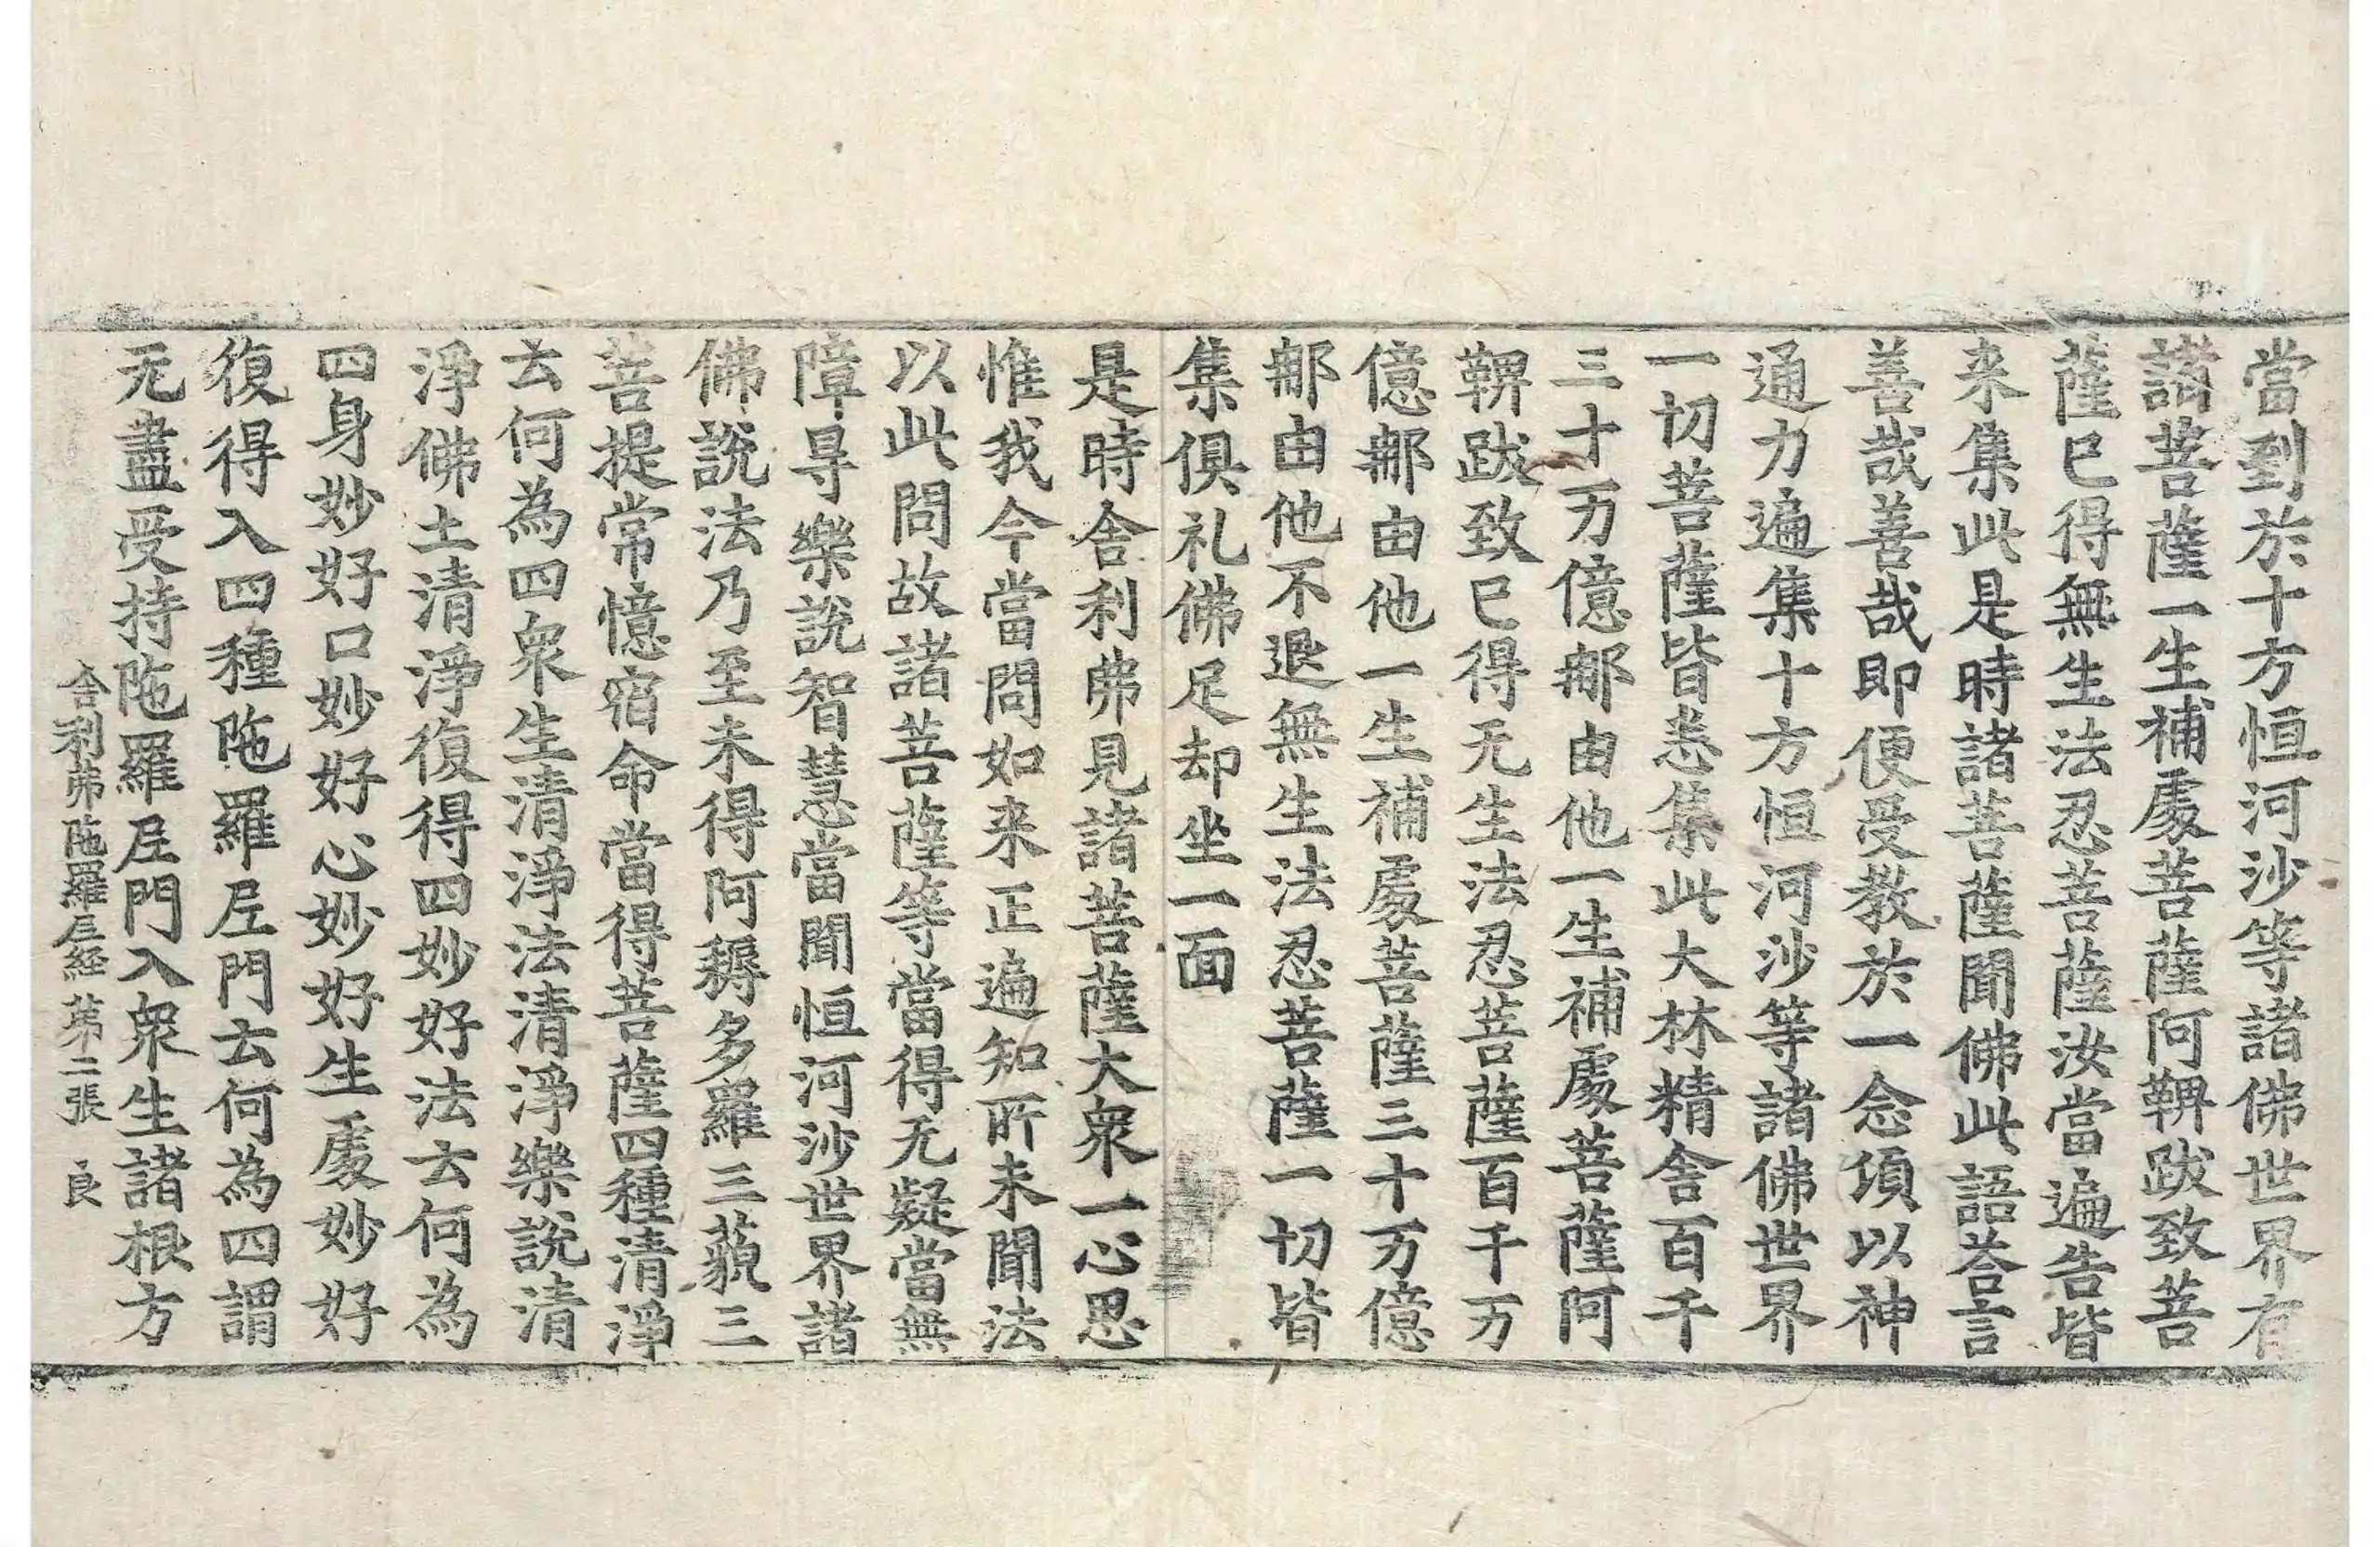 當到於十方恒河沙等諸佛世界有
諸菩薩一生補處菩薩阿鞞跋致菩
薩已得無生法忍菩薩汝當遍告皆
来集此是時諸菩薩聞佛此語荅言
善哉善哉即便受教於一念頃以神
通力遍集十方恒河沙等諸佛世界
一切菩薩皆悉集此大林精舍百千
三十万億郍由他一生補處菩薩阿
鞞跋致已得无生法忍菩薩百千万
億郍由他一生補處菩薩三十万億
郍由他不退無生法忍菩薩一切皆
集俱礼佛足却坐一面
是時舍利弗見諸菩薩大衆一心思
惟我今當問如来正遍知所未聞法
以此問故諸菩薩等當得无疑當無
障㝵樂說智慧當聞恒河沙世界諸
佛說法乃至未得阿耨多羅三藐三
菩提常憶宿命當得菩薩四種清淨
云何為四衆生清淨法清淨樂說清
淨佛土清淨復得四妙好法云何為
四身妙好口妙好心妙好生處妙好
復得入四種陁羅尼門云何為四謂
无盡受持陁羅尼門入衆生諸根方
舍利弗陁羅尼経 第二張 良